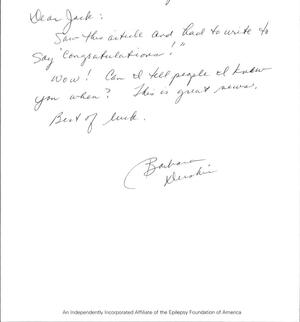 Dear Jack:
Saw this article and had to write to
say "Congratulations!"
Wow! Can I tell people I knew
you when? This is great news.
Best of luck.
Barbara
An Independently Incorporated Affiliate of the Epilepsy Foundation of America